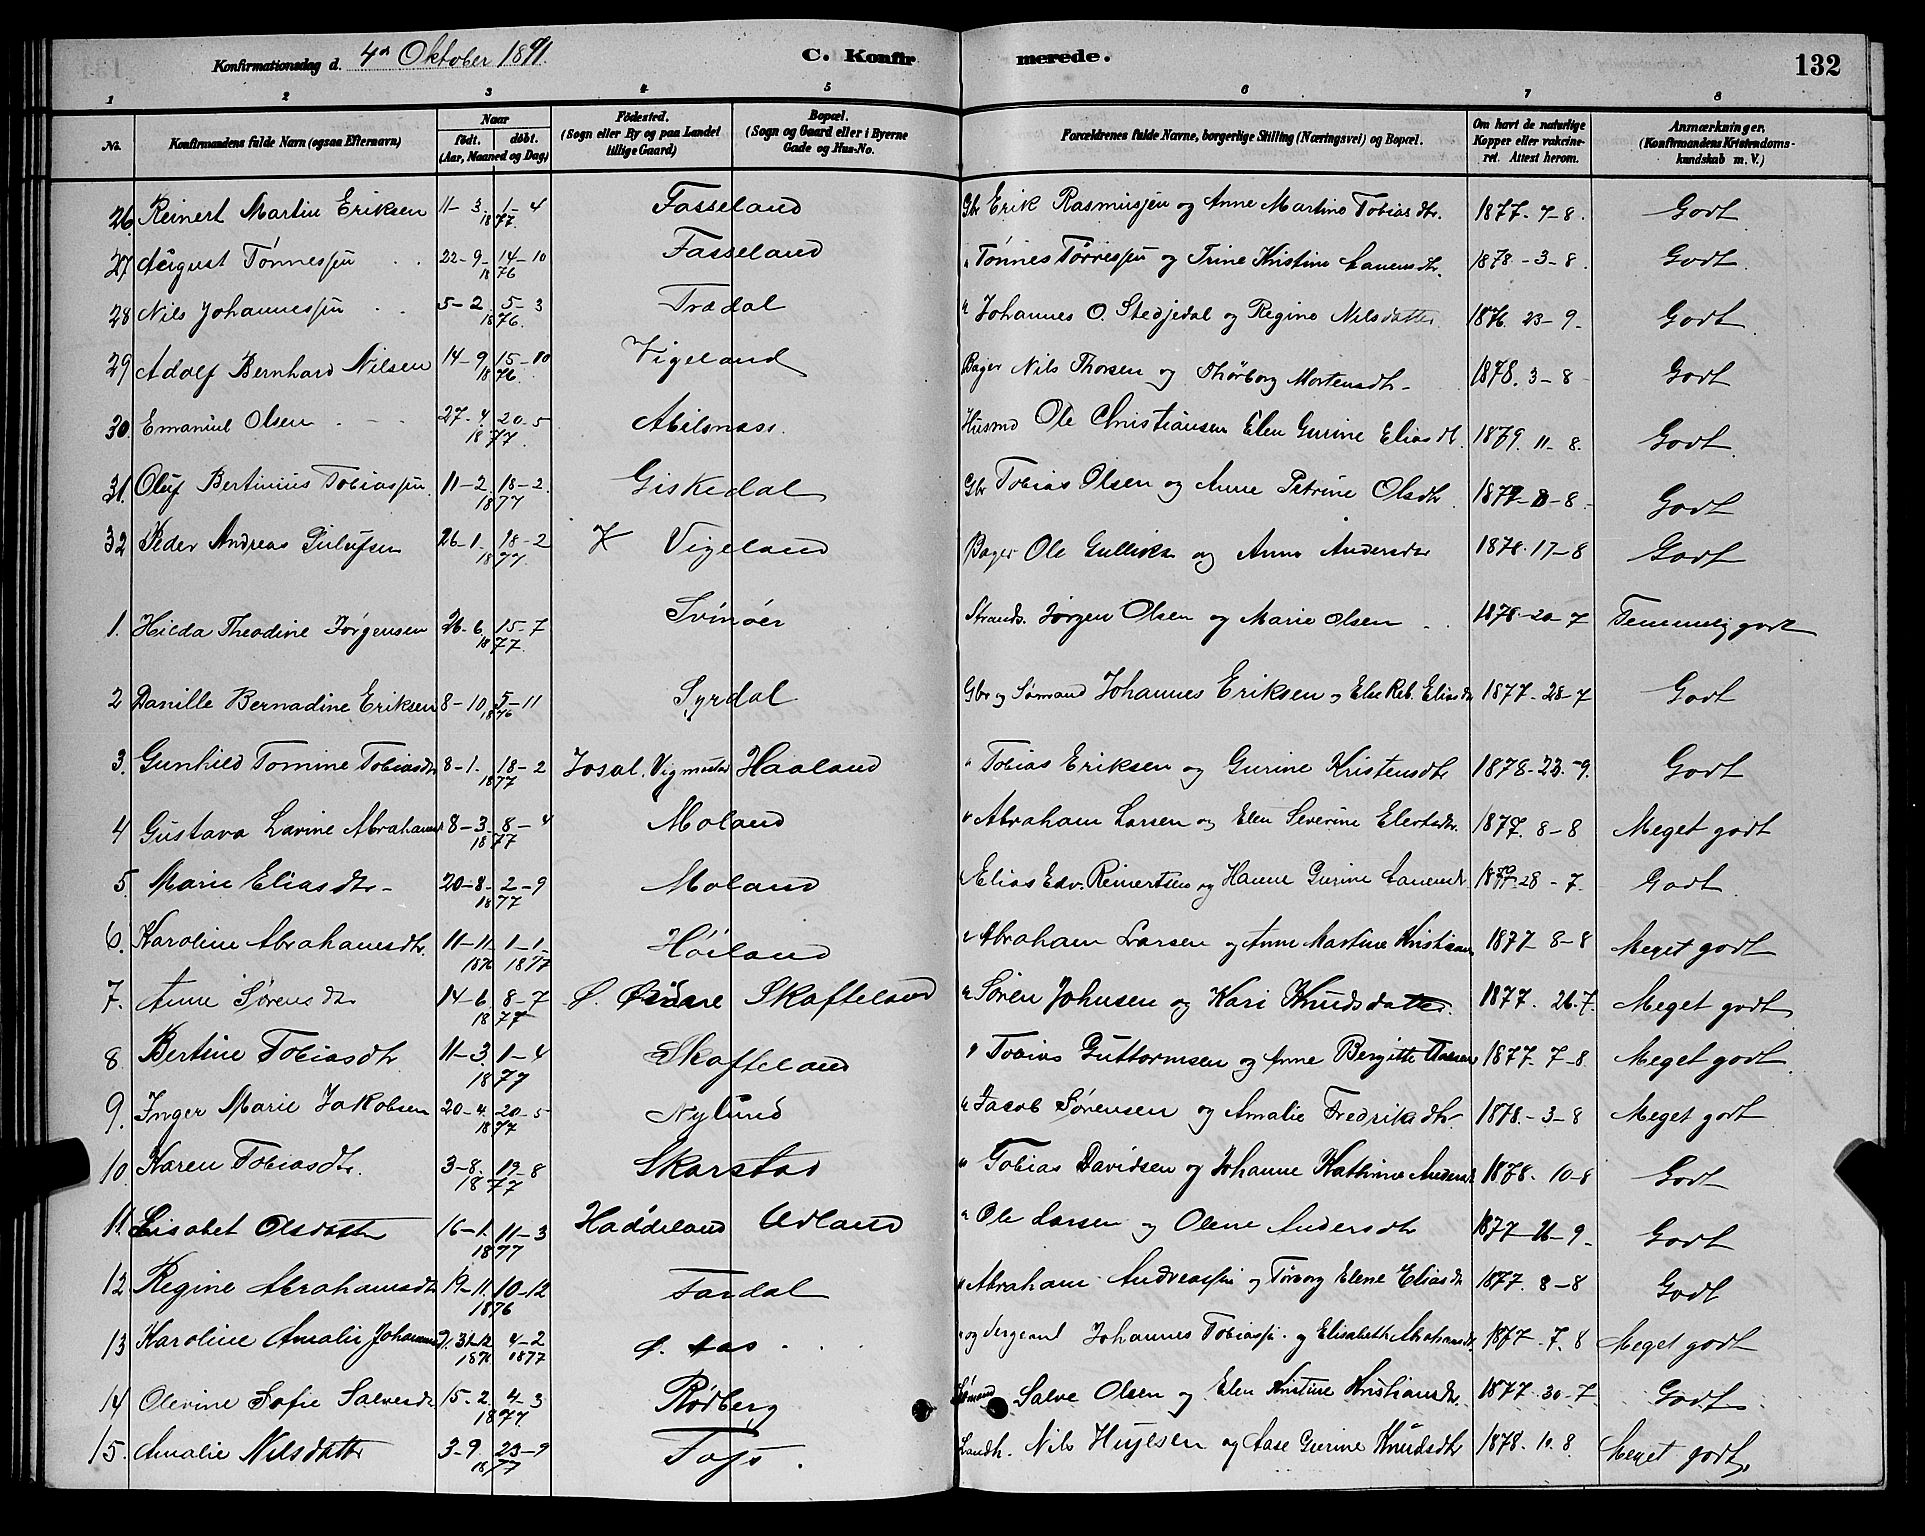 Konfirmationsdag d. 4de Oktober 1891. C. Konfirmerede. 132
1 2 3 4 5 6 7 8
No. Konfirmandens fulde Navn (ogsaa Efternavn) Naar født. døbt. (Aar, Maaned og Dag) Fødested. (Sogn eller By og paa Landet tillige Gaard) Bopæl. (Sogn og Gaard eller i Byerne Gade og Hus-No. Forældrenes fulde Navne, borgerlige Stilling (Næringsvei) og Bopæl. Om havt de naturlige Kopper eller vakcineret. Attest herom. Anmærkninger. (Konfirmandens Kristendomskundskab m. V.)
26. Reinert Martin Eriksen 11-3. 1-4 1877. Fasseland Gbr Erik Rasmussen og Anne Martine Tobiasdtr. 1877-7-8. Godt
27 August Tønnessen 22-9- 14-10 1876 Fasseland " Tønnes Tørressen og Trine Kristine 1878-3-8. Godt
28 Nils Johannessen 5-2 5-3 1876. Trædal " Johannes O. Stedjedal og Regine Nilsdatter 1876. 23-9. Godt
29 Adolf Bernhard Nilsen 14-9 15-10 1876. Vigeland Bager Nils Thorsen og Thorborg Mortensdtr- 1878. 3-8- Godt
30. Emanuel Olsen 27-4. 20-5 1877. Abilsnæss. Husmd Ole Christiansen Elen Gurine Eliasdt 1879. 11-8. Godt
31. Oluf Bertinius Tobiassen. 11-2. 18-2. 1877 Giskedal Gbr Tobias Olsen og Anne Petrine Olsdtr -8- Godt
32 Peder Andreas 26-1. 18-2 1877. K Vigeland Bager Ole og Anne Andersdtr 1878. 17-8 Godt
1. Hilda Theodine Jørgensen 26-6 15-7 1877. Svinøer Strands. Jørgen Olsen og Marie Olsen 1878-20-7 Temmelig godt
2 Danille Bernadine Eriksen 8-10. 5-11 1876 Syrdal Gbr og Sømand Johannes Eriksen og Else Reb. Eliasdtr 1877-28-7 Godt
3. Gunhild Tomine Tobiasdtr 8-1. 18-2 1877 Josal, Vigmostad Haaland " Tobias Eriksen og Gurine Kristensdtr 1878-23-9. Godt
4 Gustava Lavine Abrahams 8-3. 8-4 1877 Moland " Abraham Larsen og Elen Severine 1877. 8-8 Meget godt
5. Marie Eliasdtr- 20-8- 2-9 1877 Moland " Elias Edv. Reinertsen og Hanne Gurine 28-7. Godt
6. Karoline Abrahamsdtr. 11-11. 1-1. 1876 1877 Høiland " Abraham Larsen og Anne Martine Kristians 1877 8-8 Meget godt
7. Anne Sørensdtr 14-6. 8-7 1877 Skofteland " Søren Johnsen og Kari Knudsdatter. 1877. 26.7. Meget godt
8 Bertine Tobiasdtr 11-3. 1-4 1877 Skofteland " Tobias Guttormsen og Anne Bergitte 1877. 7-8. Meget godt.
9. Inger Marie Jakobsen 20-4. 20-5 1877 Nylund " Jacob Sørensen og Amalie Fredriksdtr. 1878.-3-8 Meget godt
10. Karen Tobiasdtr. 3-8. 19-8 1877 Skarstad " Tobias Davidsen og Johanne Kathrine 1878. 10-8 Godt
11. Lisabet Olsdatter 16-1. 11-3 1877 Haddeland Udland " Ole Larsen og Olene Andersdtr 1877 26-9- Godt
12. Regine Abrahamsdtr 19-11. 10-12 1876 Fardal " Abraham Andreassen og Torborg Elene Eliasdtr 1877. 8-8 Godt
13 Karoline Amalie Johannesd. 31-12 4-2 1876 1877 Ø. Aas. " og Sergeant Johannes Tobiassen og Elisabeth Abrahamsdtr 1877. 7. 8 Meget godt
14 Olevine Sofie Salvesdtr 15-2. 4-3 1877 Rødberg Sømand Salve Olsen og Elen Kristine Kristiansdtr. 1877. 30-7. Godt
15. Amalie Nilsdatter 3-9. 23-9 1877 Foss. Landh. Nils og Aase Gurine Knudsdtr 1878. 10. 8. Meget godt,